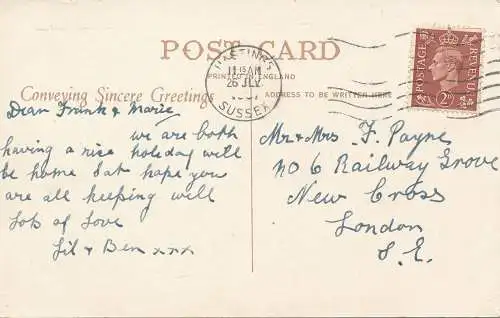 POST CARD
PRINTED IN ENGLAND
Conveying Sincere Greetings
ADDRESS TO BE WRITTEN HERE
HASTINGS
11 15 AM
26 JLY
SUSSEX
POSTAGE
REVENUE
2D
Dear Frank & Marie
we are both
having a nice holiday will
be home Sat hope you
are all keeping well
lots of love
Lil & Ben xxx
Mr & Mrs F. Payne
no 6 Railway Grove
New Cross
London
S.E.